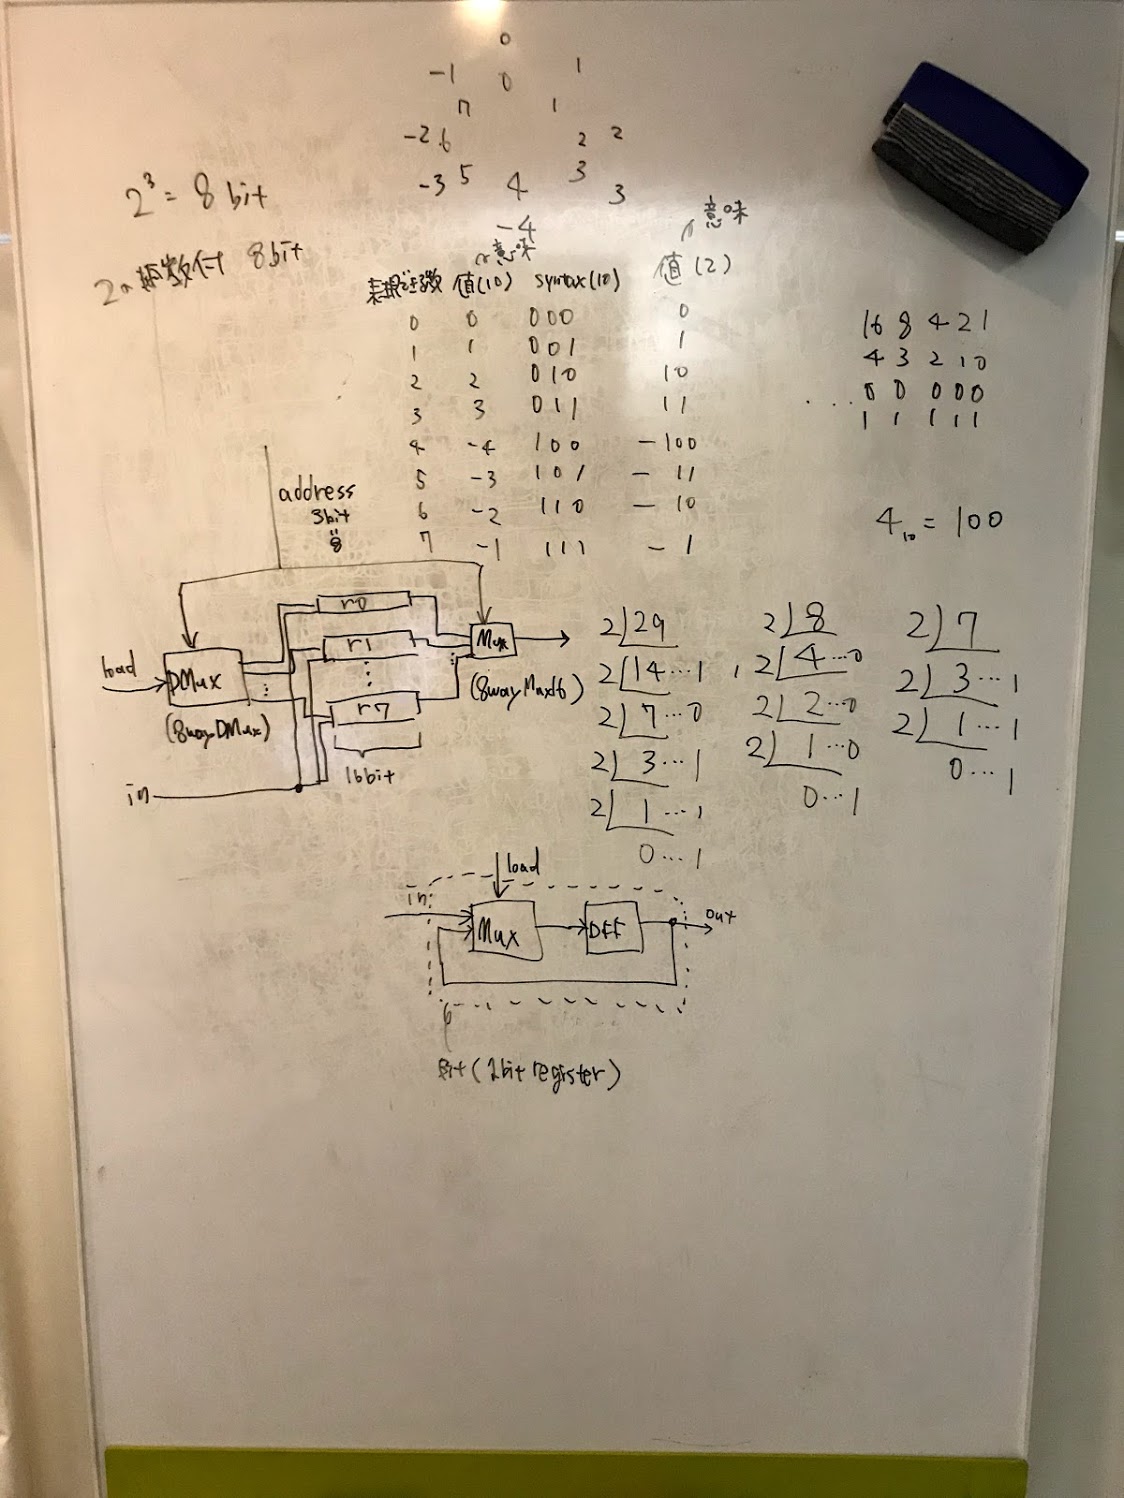 0
-1 0 1
7 1
-2 6 2 2
-3 5 4 3 3
-4
2³ = 8 bit
8bit
意味
意味
値(10) syntax(10) 値(2)
0 0 000 0
1 1 001 1
2 2 010 10
3 3 011 11
4 -4 100 -100
5 -3 101 - 11
6 -2 110 - 10
7 -1 111 - 1
16 8 4 2 1
4 3 2 1 0
... 0 0 0 0 0
1 1 1 1 1
4₁₀ = 100
address
3bit
8
load
DMux
(8wayDMux)
in
r0
r1
⋮
r7
16bit
Mux
(8wayMux16)
2 29
2 14 ... 1
2 7 ... 0
2 3 ... 1
2 1 ... 1
0 ... 1
2 8
2 4 ... 0
2 2 ... 0
2 1 ... 0
0 ... 1
2 7
2 3 ... 1
2 1 ... 1
0 ... 1
load
in
Mux
DFF
out
(1bit register)